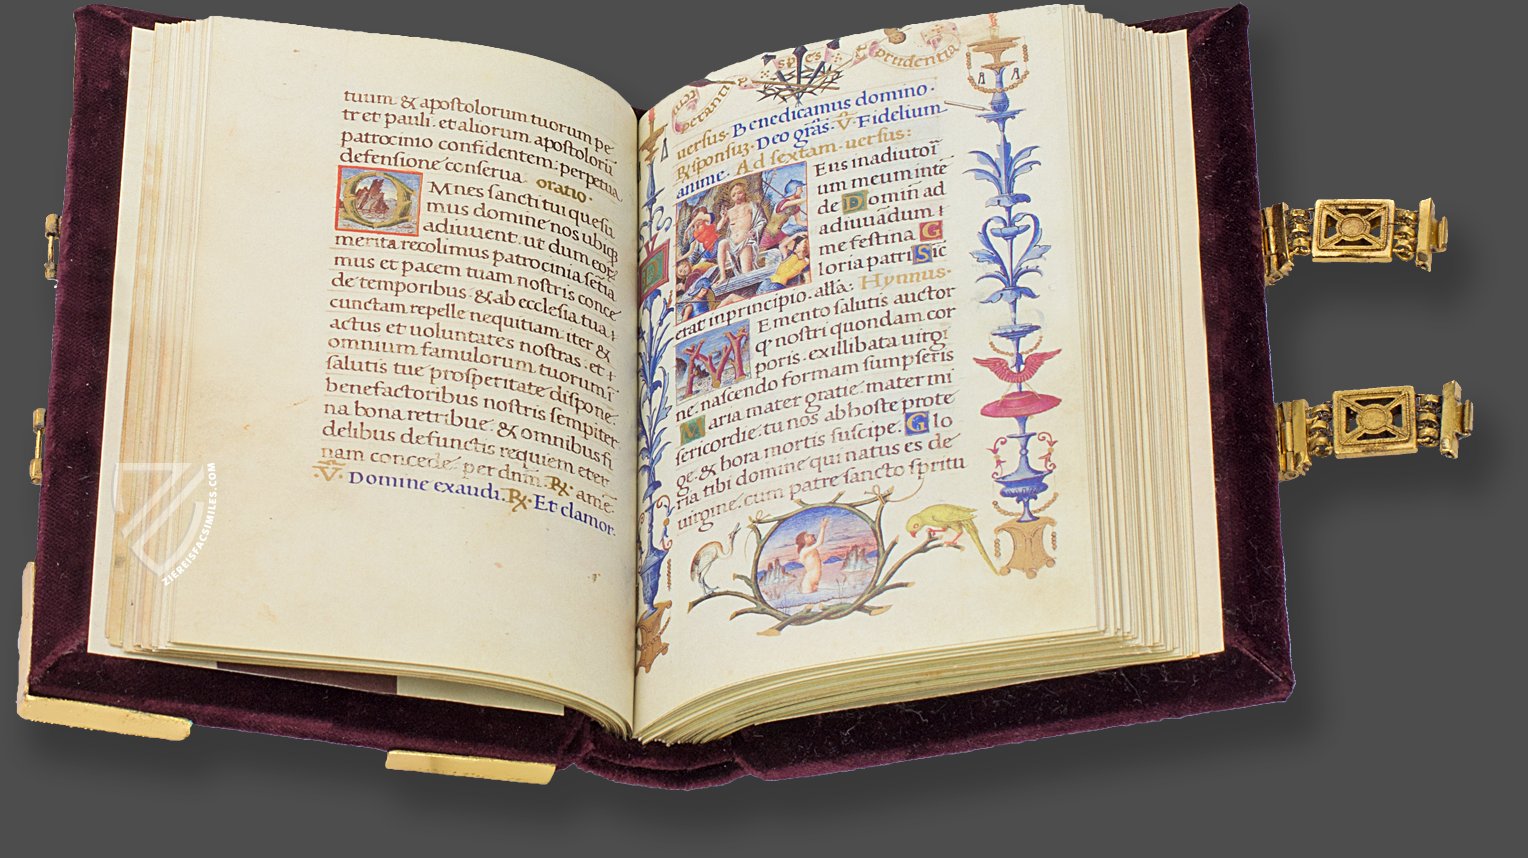 tuum & apostolorum tuorum pe-
tr et pauli et aliorum apostolorū
patrocinio confidentem perpetua
defensione conserua oratio.
OMnes sancti tui quesu
mus domine nos ubiqʒ
adiuuent ut dum eorʒ
merita recolimus patrocinia sētia
mus et pacem tuam nostris conce
de temporibus & ab ecclesia tua
cunctam repelle nequitiam iter &
actus et uoluntates nostras et
omnium famulorum tuorum ī
salutis tue prosperitate dispone
benefactoribus nostris sempiter
na bona retribue & omnibus fi
delibus defunctis requiem eter
nam concede per dnm. ℞. ame
℣. Domine exaudi. ℞. Et clamor.
spes
prudentia
uersus. Benedicamus domino.
Rsponsuʒ. Deo grās. ℣. Fidelium
anime. Ad sextam. uersus:
Eus in adiutoī
um meum inte
de Domin ad
adiuuādum
me festina G
loria patri Sic
erat in principio. alla. Hymnus.
MEmento salutis auctor
q' nostri quondam cor
poris. ex illibata uirgi
ne. nascendo formam sumpseris
Maria mater gratie mater mi
sericordie tu nos ab hoste prote
ge. & hora mortis suscipe. Glo
ria tibi domine qui natus es de
uirgine. cum patre sancto spritu
ZIEREISFACSIMILES.COM